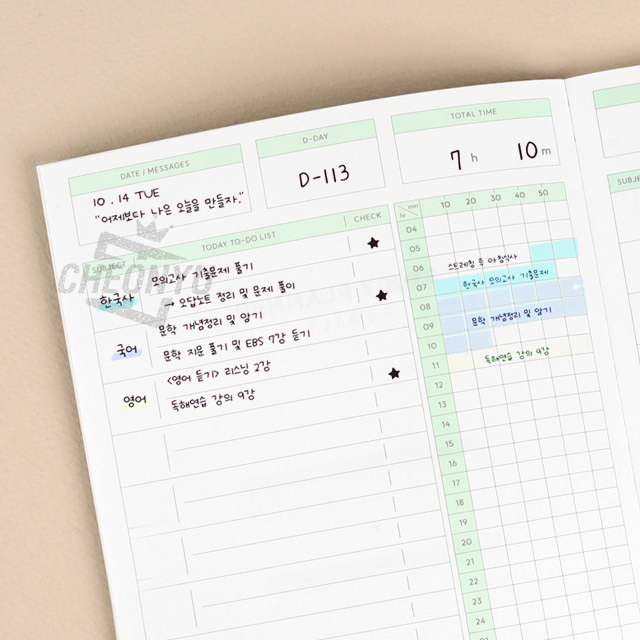 DATE / MESSAGES
10 . 14 TUE
"어제보다 나은 오늘을 만들자."
D-DAY
D-113
TOTAL TIME
7 h 10 m
SUBJECT
TODAY TO-DO LIST
CHECK
한국사
모의고사 기출문제 풀기
→ 오답노트 정리 및 문제 풀이
국어
문학 개념정리 및 암기
문학 지문 풀기 및 EBS 7강 듣기
영어
<영어 듣기> 리스닝 2강
독해연습 강의 9강
CHEONYU
min
hr
10 20 30 40 50
04
05
06 스트레칭 후 아침식사
07 한국사 모의고사 기출문제
08
09 문학 개념정리 및 암기
10
11 독해연습 강의 9강
12
13
14
15
16
17
18
19
20
21
22
23
24
SUBJE